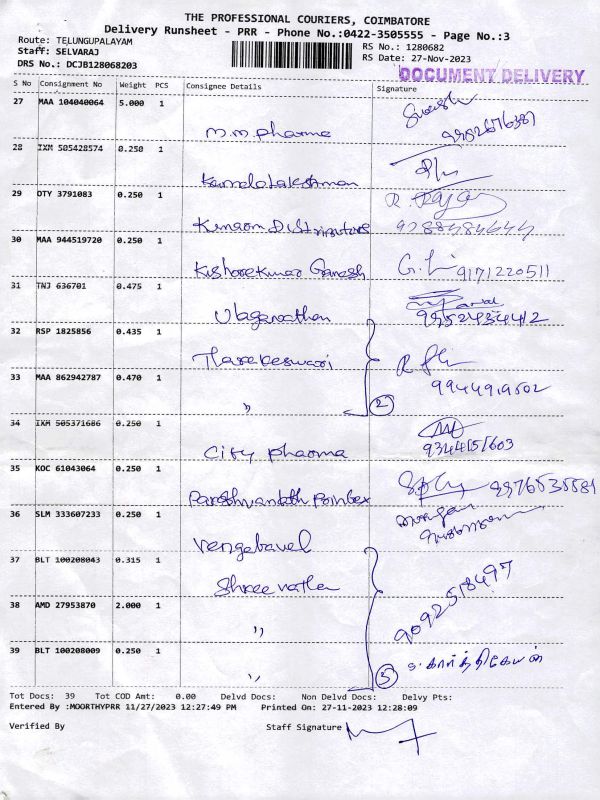 THE PROFESSIONAL COURIERS, COIMBATORE
Delivery Runsheet - PRR - Phone No.:0422-3505555 - Page No.:3
Route: TELUNGUPALAYAM
Staff: SELVARAJ
DRS No.: DCJB128068203
RS No.: 1280682
RS Date: 27-Nov-2023
DOCUMENT DELIVERY
S No Consignment No Weight PCS Consignee Details Signature
27 MAA 104040064 5.000 1
M.M. Pharma
28 IXM 505428574 0.250 1
Kamala Lakshman
29 OTY 3791083 0.250 1
Distributors
30 MAA 944519720 0.250 1
Kishore Kumar Ganesh 9171220511
31 TNJ 636701 0.475 1
Ulaganathan
32 RSP 1825856 0.435 1
Tharakeswari
33 MAA 862942787 0.470 1
" 2
34 IXM 505371686 0.250 1
City Pharma
35 KOC 61043064 0.250 1
36 SLM 333607233 0.250 1
37 BLT 100208043 0.315 1
Shree
9092518497
38 AMD 27953870 2.000 1
"
39 BLT 100208009 0.250 1
" கார்த்திகேயன்
Tot Docs: 39 Tot COD Amt: 0.00 Delvd Docs: Non Delvd Docs: Delvy Pts:
Entered By :MOORTHYPRR 11/27/2023 12:27:49 PM Printed On: 27-11-2023 12:28:09
Verified By Staff Signature